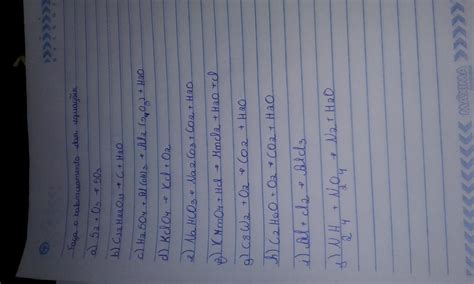 Faça o balanceamento das equações
a) S2 + O2 → SO3
b) C12H22O11 → C + H2O
c) H2SO4 + Al(OH)3 → Al2(SO4)3 + H2O
d) KClO4 → KCl + O2
e) NaHCO3 → Na2CO3 + CO2 + H2O
f) KMnO4 + HCl → MnCl2 + H2O + Cl
g) C8H2 + O2 → CO2 + H2O
h) C2H6O + O2 → CO2 + H2O
i) Al + Cl2 → AlCl3
j) N2H4 + N2O4 → N2 + H2O